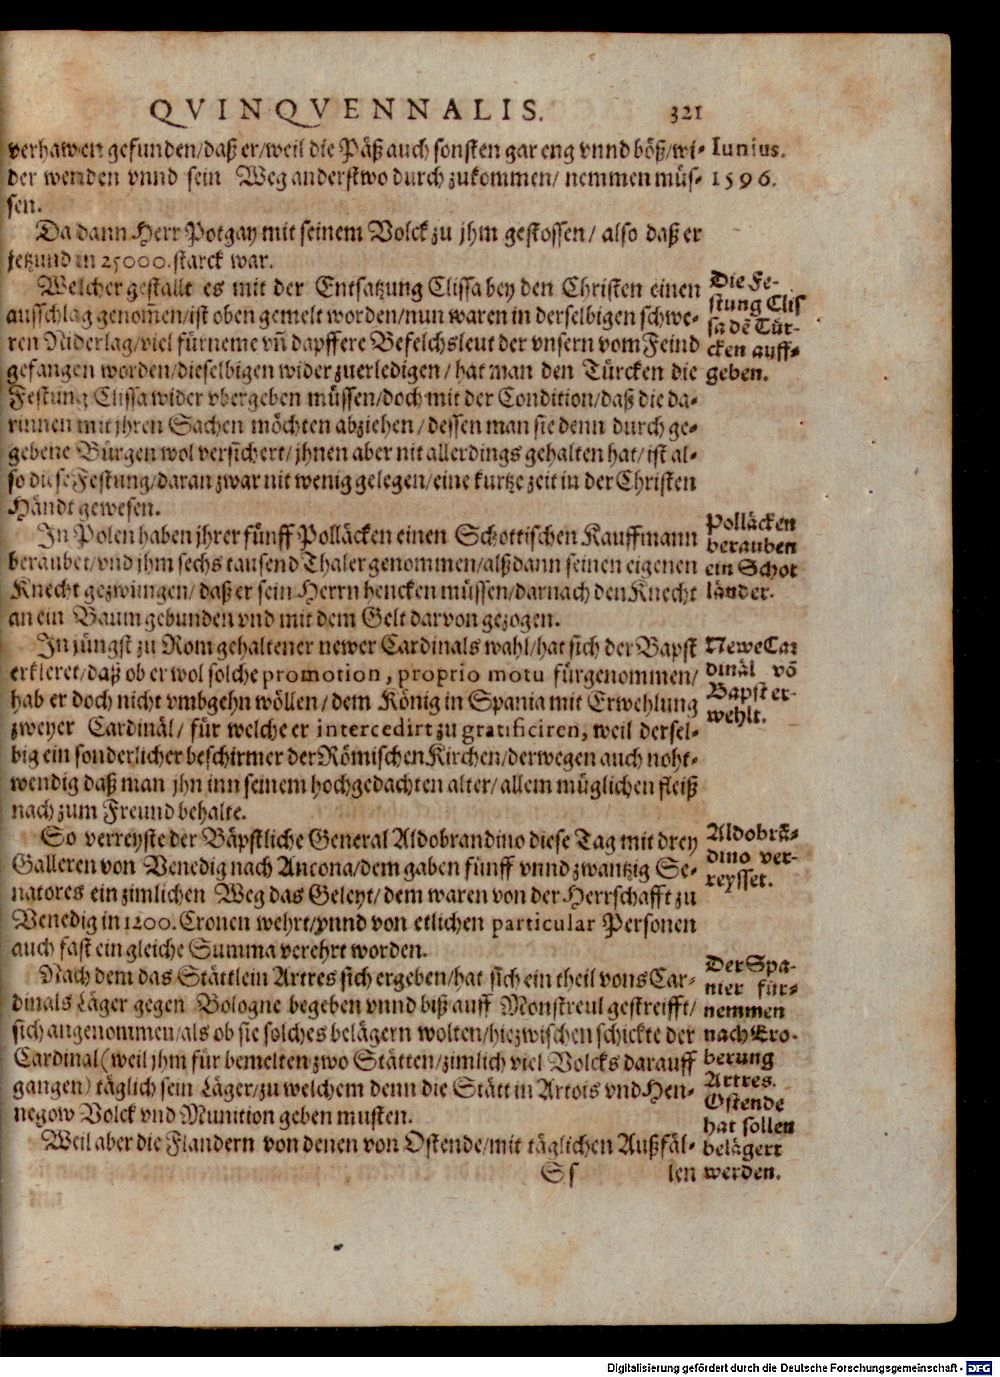 QVINQVENNALIS. 321
verhawen gefunden/daß er/weil die Päß auch sonsten gar eng vnnd böß/wi-
der wenden vnnd sein Weg anderstwo durch zukommen/ nemmen müs-
sen.
Iunius.
1596.
Da dann Herr Potgay mit seinem Volck zu jhm gestossen/ also daß er
jetzund in 25000. starck war.
Welcher gestallt es mit der Entsatzung Clissa bey den Christen einen
ausschlag genom̄en/ist oben gemelt worden/nun waren in derselbigen schwe-
ren Niderlag/viel fürneme vn̄ dapffere Befelchsleut der vnsern vom Feind
gefangen worden/dieselbigen wider zuerledigen/ hat man den Türcken die
Festung Clissa wider vbergeben müssen/doch mit der Condition/daß die da-
rinnen mit jhren Sachen möchten abziehen/ dessen man sie denn durch ge-
gebene Bürgen wol versichert/ jhnen aber nit allerdings gehalten hat/ ist al-
so diese Festung/daran zwar nit wenig gelegen/eine kurtze zeit in der Christen
Händt gewesen.
Die Fe-
stung Clis
sa dē Tür-
cken auff-
geben.
In Polen haben jhrer fünff Polläcken einen Schottischen Kauffmann
beraubet/vnd jhm sechs tausend Thaler genommen/alßdann seinen eigenen
Knecht gezwungen/ daß er sein Herrn hencken müssen/darnach den Knecht
an ein Baum gebunden vnd mit dem Gelt darvon gezogen.
Polläcken
berauben
ein Schot
länder.
In jüngst zu Rom gehaltener newer Cardinals wahl/hat sich der Bapst
erkleret/daß ob er wol solche promotion, proprio motu fürgenommen/
hab er doch nicht vmbgehn wöllen/ dem König in Spania mit Erwehlung
zweyer Cardinäl/ für welche er intercedirt zu gratificiren, weil dersel-
big ein sonderlicher beschirmer der Römischen Kirchen/derwegen auch noht-
wendig daß man jhn inn seinem hochgedachten alter/ allem müglichen fleiß
nach zum Freund behalte.
Newe Car
dinäl vō
Bapst er-
wehlt.
So verreyste der Bäpstliche General Aldobrandino diese Tag mit drey
Galleren von Venedig nach Ancona/dem gaben fünff vnnd zwantzig Se-
natores ein zimlichen Weg das Geleyt/ dem waren von der Herrschafft zu
Venedig in 1200. Cronen wehrt/vnnd von etlichen particular Personen
auch fast ein gleiche Summa verehrt worden.
Aldobrā-
dino ver-
reysset.
Nach dem das Stättlein Artres sich ergeben/hat sich ein theil vons Car-
dinals Läger gegen Bologne begeben vnnd biß auff Monstreul gestreifft/
sich angenommen/als ob sie solches belägern wolten/hiezwischen schickte der
Cardinal (weil jhm für bemelten zwo Stätten/zimlich viel Volcks darauff
gangen) täglich sein Läger/zu welchem denn die Stätt in Artois vnd Hen-
negow Volck vnd Munition geben musten.
Weil aber die Flandern von denen von Ostende/mit täglichen Außfäl-
Der Spa-
nier für-
nemmen
nach Ero-
berung
Artres.
Ostende
hat sollen
belägert
werden.
Ss len
Digitalisierung gefördert durch die Deutsche Forschungsgemeinschaft - DFG